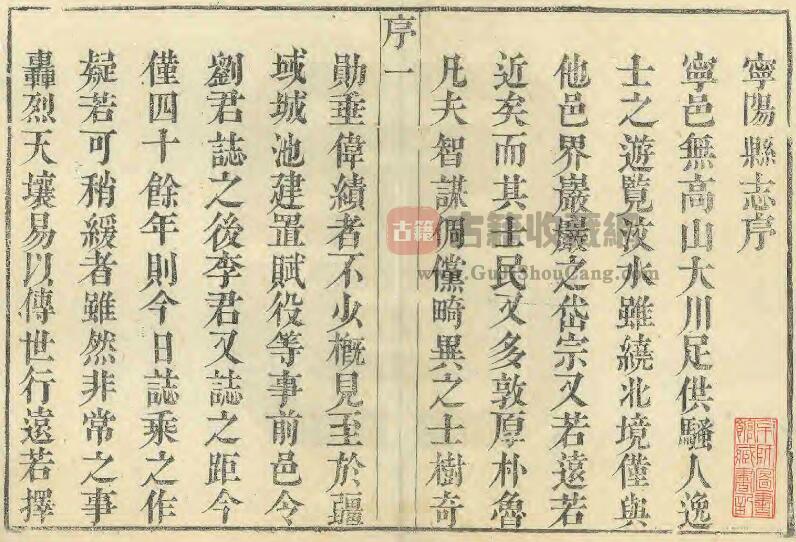 寧陽縣志序
寧邑無高山大川足供騷人逸
士之遊覽汶水雖繞北境僅與
他邑界巖巖之岱宗又若遠若
近矣而其士民又多敦厚朴魯
凡夫智謀倜儻畸異之士樹奇
序一
勛垂偉績者不少概見至於疆
域城池建置賦役等事前邑令
劉君誌之後李君又誌之距今
僅四十餘年則今日誌乘之作
疑若可稍緩者雖然非常之事
轟烈天壤易以傳世行遠若擇
古籍
古籍收藏網
www.GuJiShouCang.com